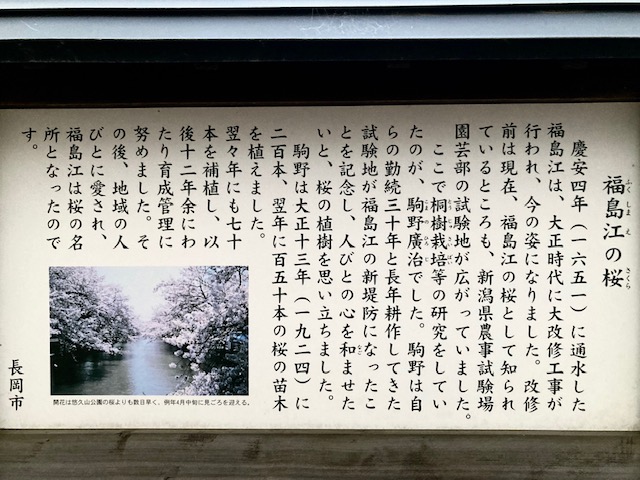 福島江の桜
ふくしまえ
さくら
慶安四年(一六五一)に通水した
福島江は、大正時代に大改修工事が
行われ、今の姿になりました。改修
前は現在、福島江の桜として知られ
ているところも、新潟県農事試験場
園芸部の試験地が広がっていました。
ここで桐樹栽培等の研究をしてい
たのが、駒野廣治でした。駒野は自
らの勤続三十年と長年耕作してきた
試験地が福島江の新堤防になったこ
とを記念し、人びとの心を和ませた
いと、桜の植樹を思い立ちました。
駒野は大正十三年(一九二四)に
二百本、翌年に百五十本の桜の苗木
を植えました。
翌々年にも七十
本を補植し、以
後十二年余にわ
たり育成管理に
努めました。そ
の後、地域の人
びとに愛され、
福島江は桜の名
所となったので
す。
開花は悠久山公園の桜よりも数日早く、例年4月中旬に見ごろを迎える。
長岡市